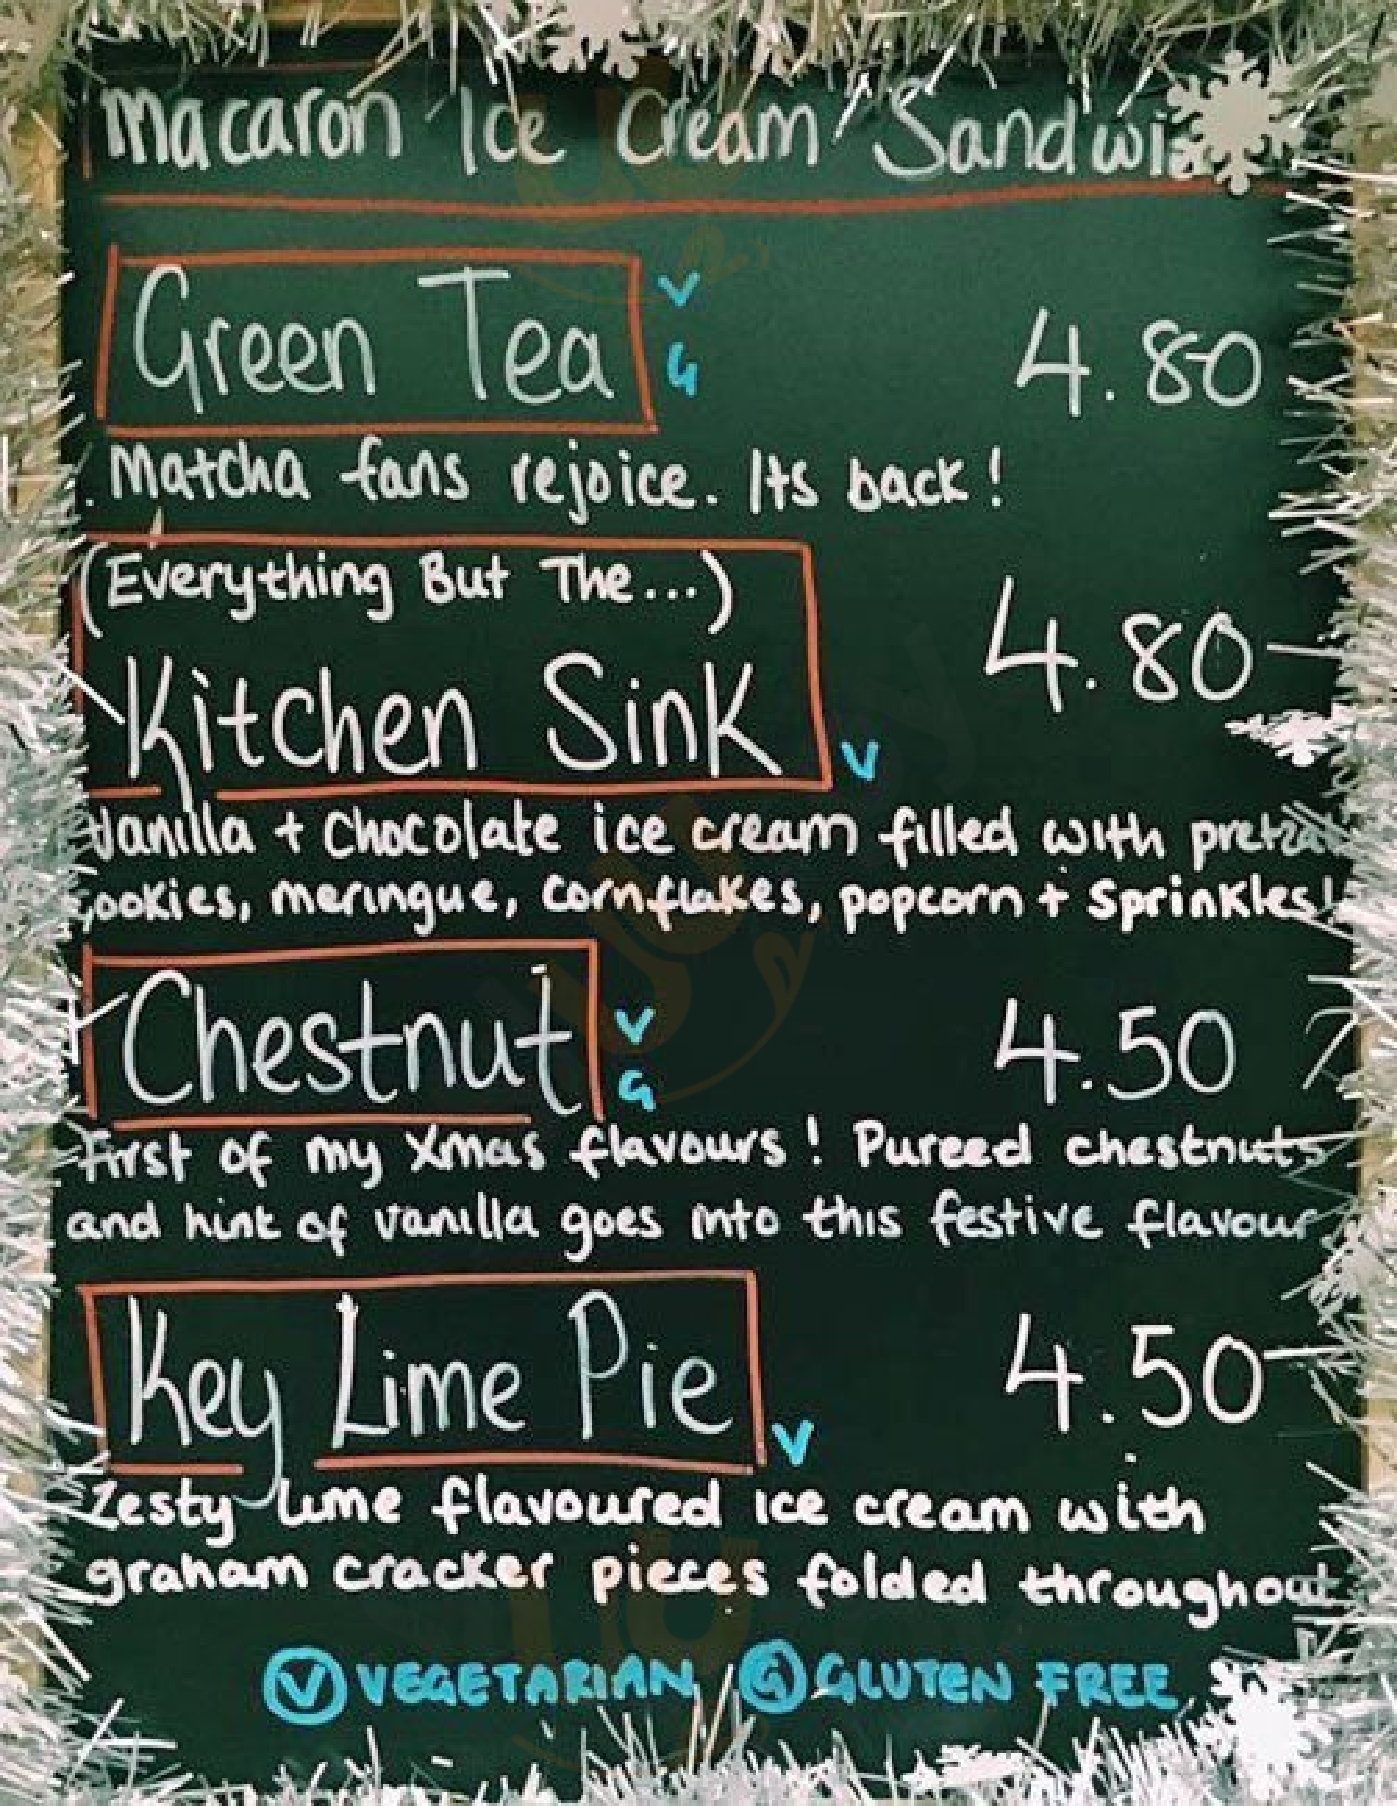 Macaron Ice Cream Sandwi
Green Tea V
G
4.80
Matcha fans rejoice. Its back!
(Everything But The...)
Kitchen Sink V
4.80
Vanilla + Chocolate ice cream filled with pretzel
cookies, meringue, cornflakes, popcorn + sprinkles!
Chestnut V
G
4.50
First of my Xmas flavours! Pureed chestnuts
and hint of vanilla goes into this festive flavour
Key Lime Pie V
4.50
Zesty lime flavoured ice cream with
graham cracker pieces folded throughout
V VEGETARIAN / G GLUTEN FREE